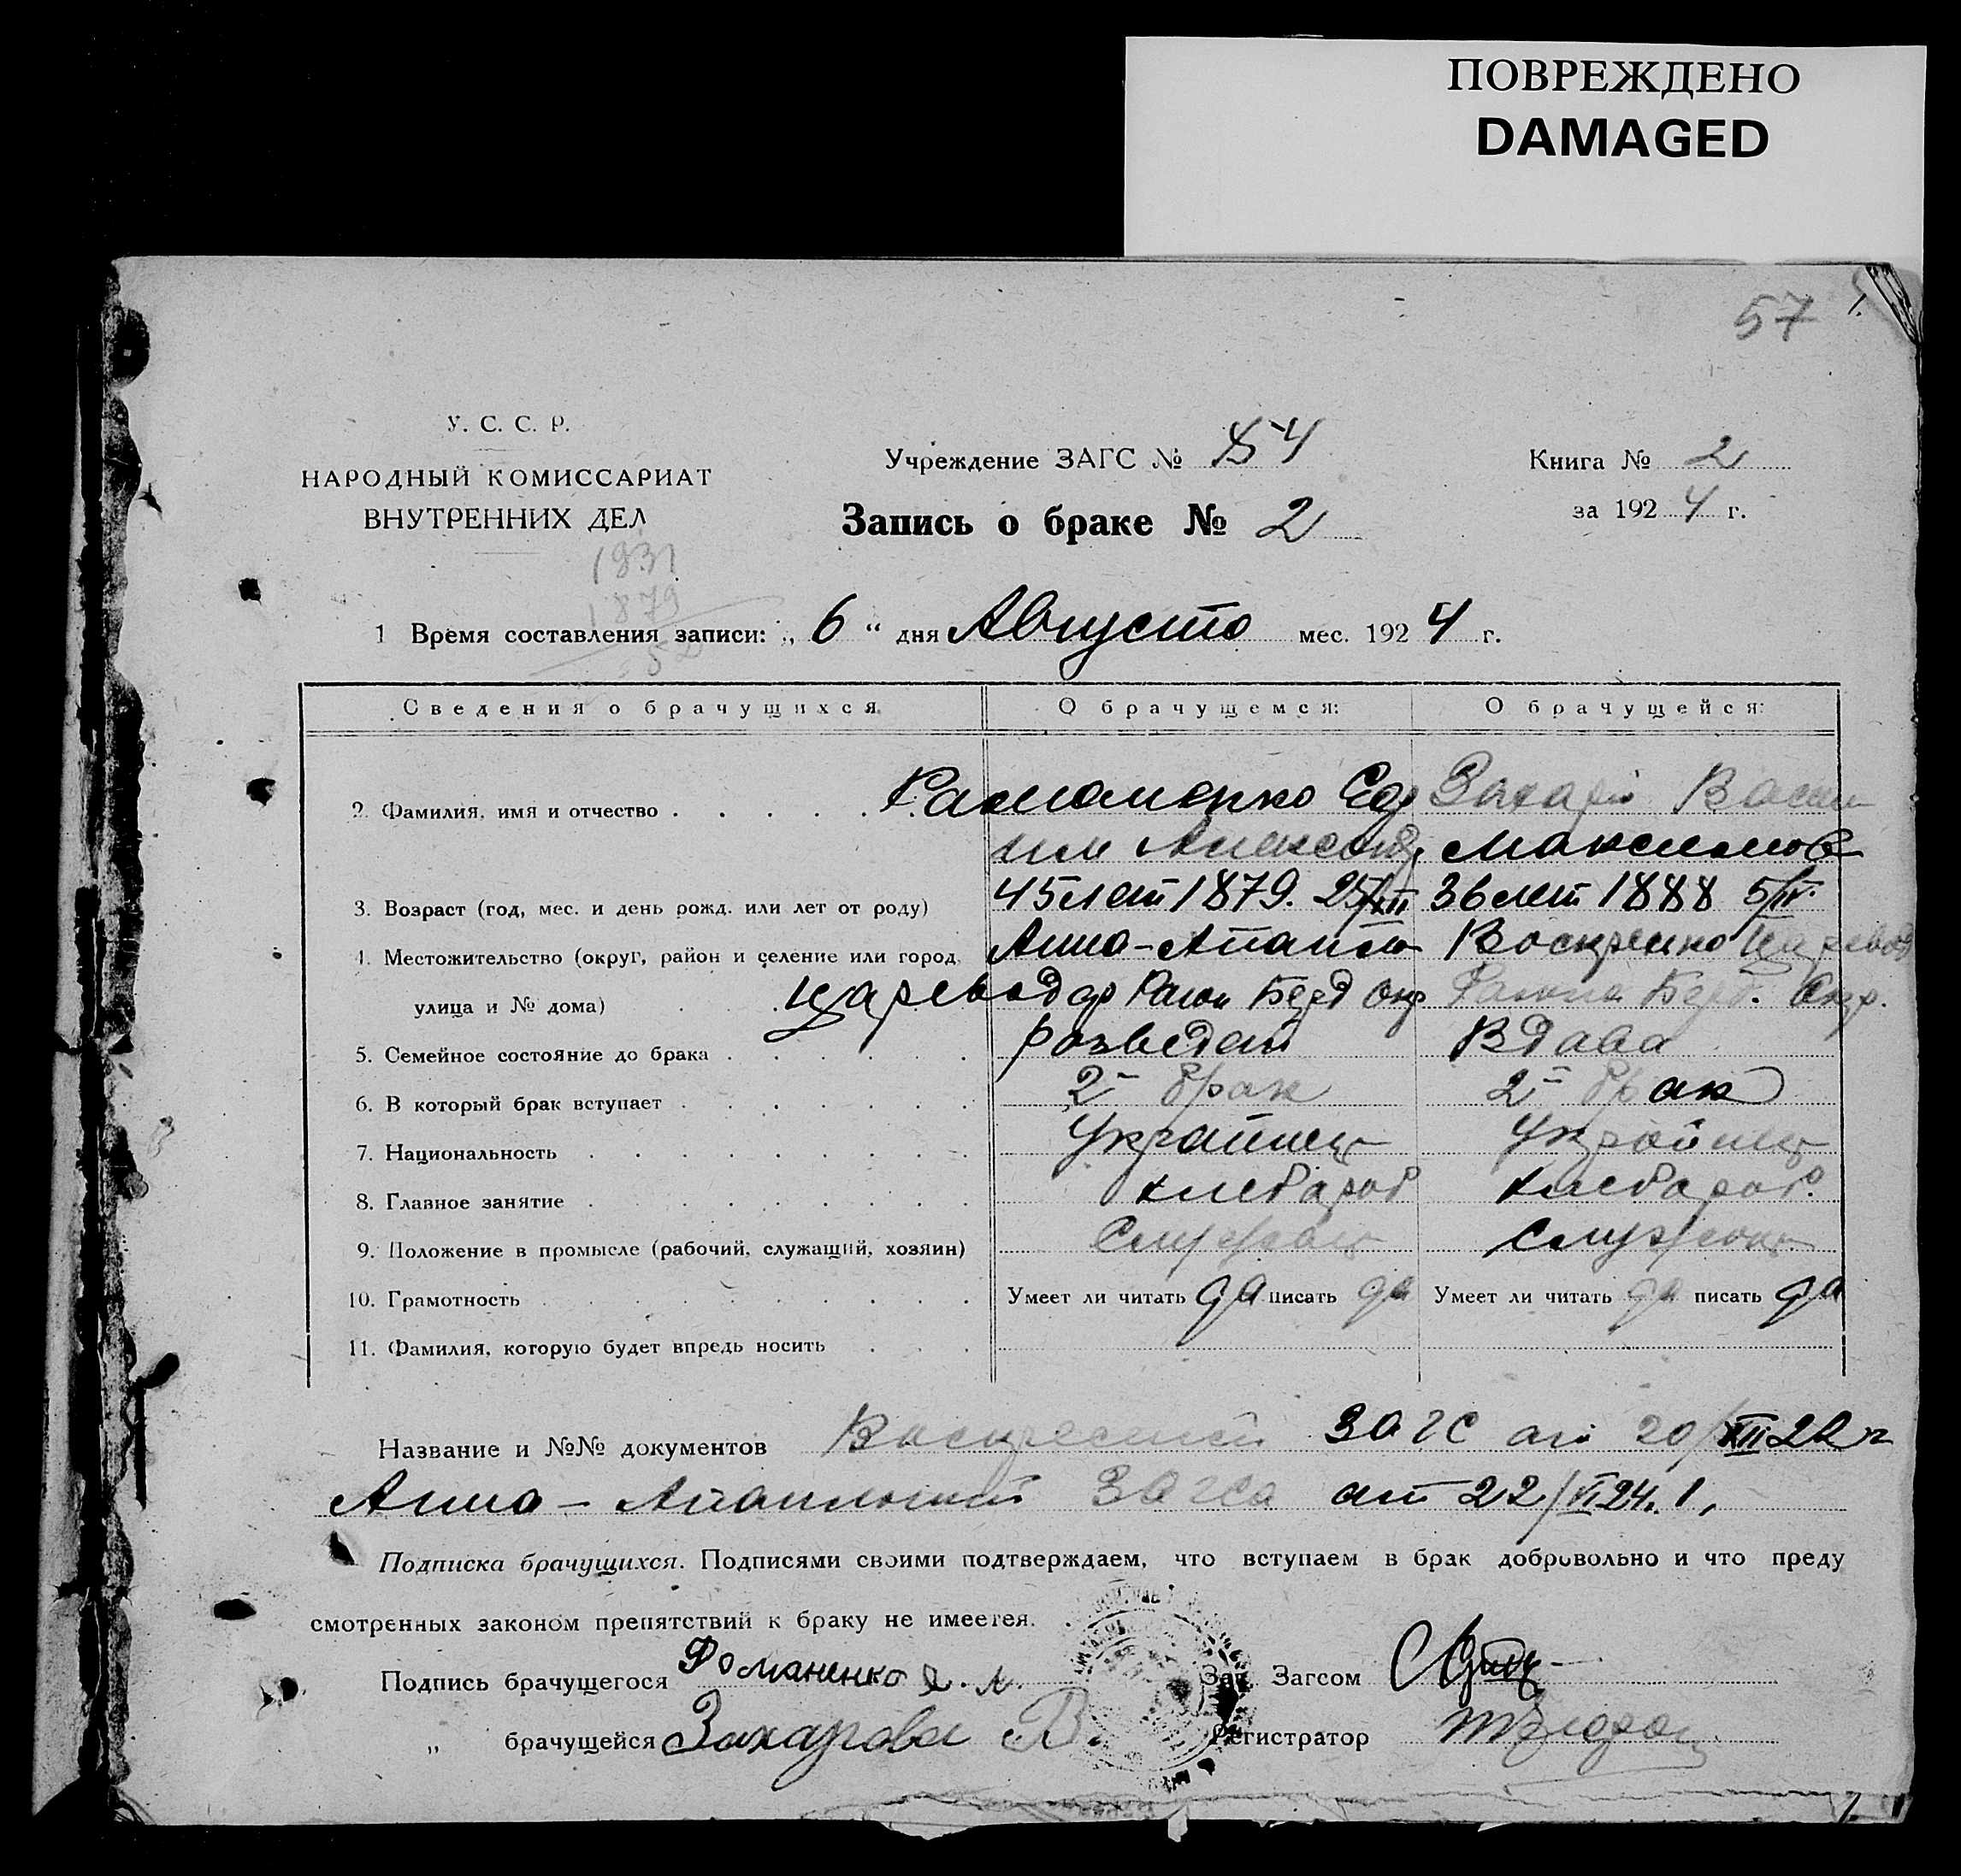 ПОВРЕЖДЕНО
DAMAGED
57
У. С. С. Р.
НАРОДНЫЙ КОМИССАРИАТ
ВНУТРЕННИХ ДЕЛ
Учреждение ЗАГС № 54
Книга № 2
за 1924 г.
Запись о браке № 2
1931
1879
52
1 Время составления записи: „ 6 “ дня Августа мес. 1924 г.
Сведения о брачущихся О брачущемся: О брачущейся:
2. Фамилия, имя и отчество Рамоменко Захарі
Максимов
3. Возраст (год, мес. и день рожд. или лет от роду) 45 лет 1879. 25/XII 36 лет 1888 5/IV.
4. Местожительство (округ, район и селение или город, Анно-
улица и № дома) Цареводар Раион Берд Окр Раиона Берд. Окр.
5. Семейное состояние до брака розведен Вдава
6. В который брак вступает 2й брак 2й брак
7. Национальность Украинец Украинец
8. Главное занятие хлебароб хлебароб.
9. Положение в промысле (рабочий, служащий, хозяин)
10. Грамотность Умеет ли читать да писать да Умеет ли читать да писать да
11. Фамилия, которую будет впредь носить
Название и №№ документов ЗАГС от 20/XII 22 г
Анно- Загса от 22/VI 24. г.
Подписка брачущихся. Подписями своими подтверждаем, что вступаем в брак добровольно и что преду
смотренных законом препятствий к браку не имеется.
Подпись брачущегося Романенко Е. А. Зав. Загсом
„ брачущейся Захарова В. Регистратор